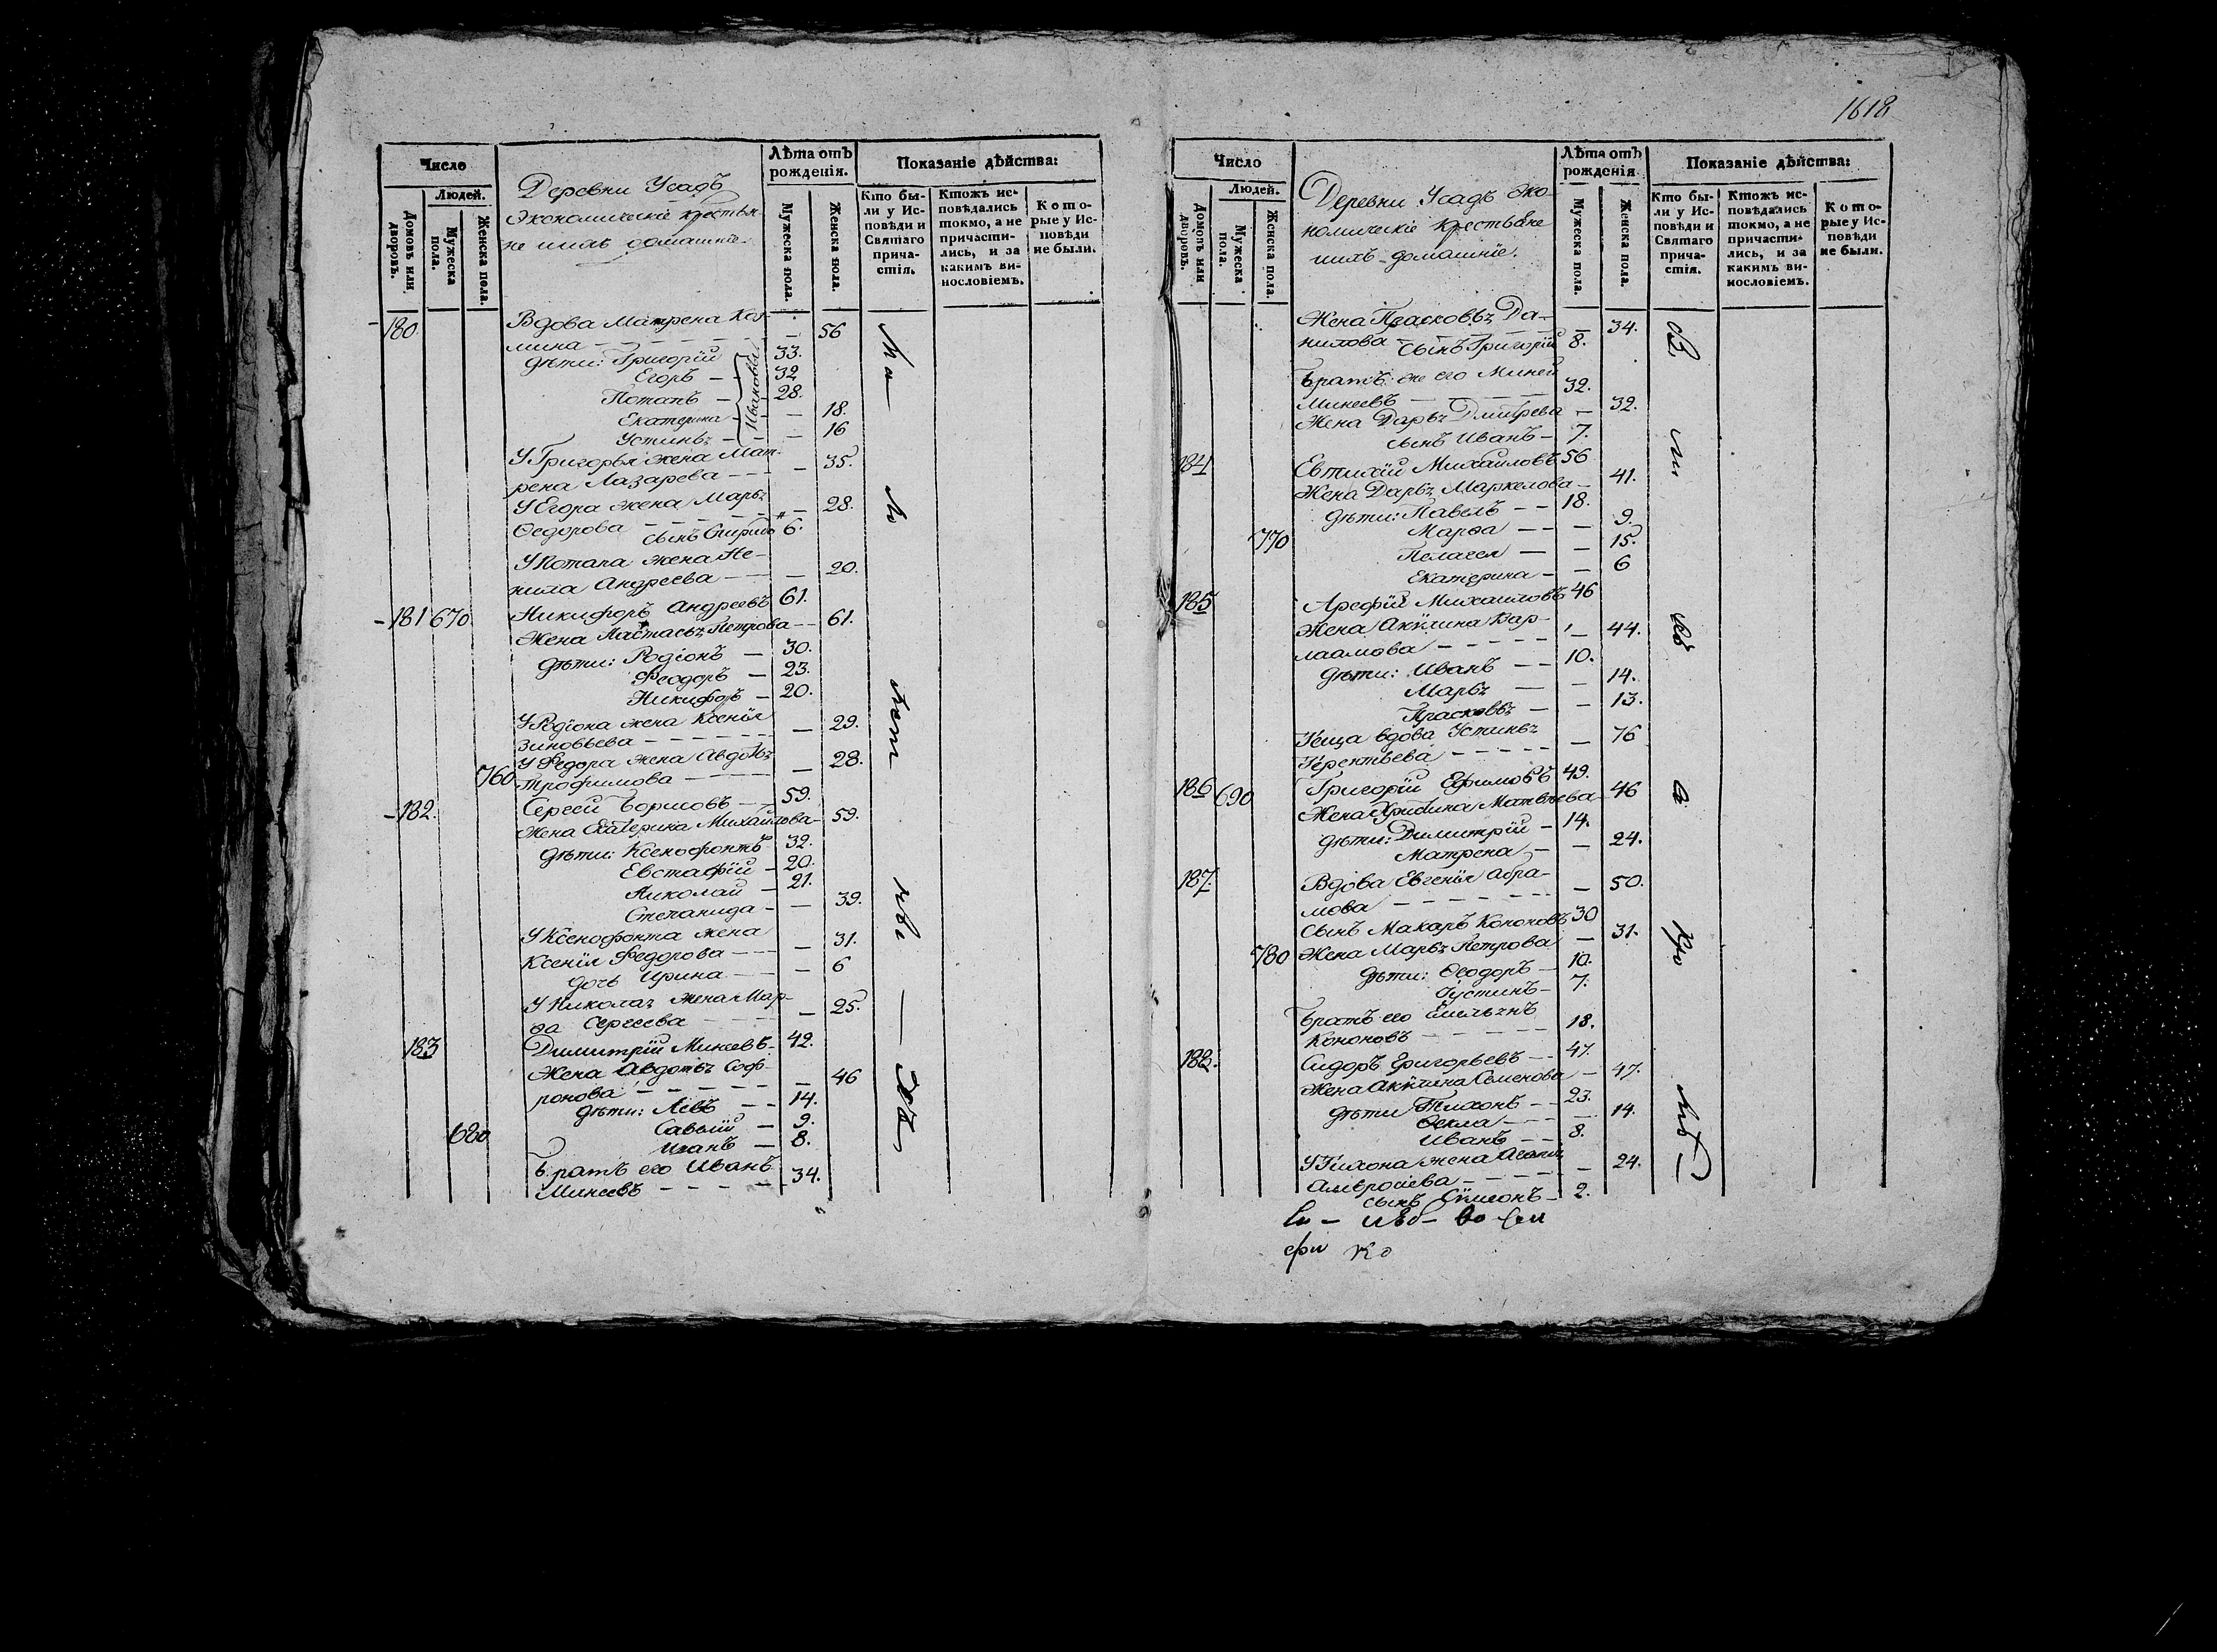 1618
Число
Людей.
Домовъ или дворовъ.
Мужеска пола.
Женска пола.
Деревни Усадъ
Экономическіе крестья-
не и ихъ домашніе.
Лѣта отъ рожденія.
Мужеска пола.
Женска пола.
Показаніе дѣйства:
Кто бы-
ли у Ис-
повѣди и
Святаго
прича-
стія.
Ктожъ ис-
повѣдались
токмо, а не
причасти-
лись, и за
какимъ ви-
нословіемъ.
Кото-
рые у Ис-
повѣди
не были.
180. Вдова Матрена Коз-
мина — 56
дѣти: Григорій 33.
Егоръ — 32
Потапъ — 28.
Екатерина — 18.
Устинья — 16
Ивановы
У Григорья жена Мат-
рена Лазарева — 35.
У Егора жена Марья
Ѳедорова — 28.
сынъ Спиридо 6.
У Потапа жена Не-
нила Андреева — 20.
181 670 Никифоръ Андреевъ 61.
Жена Настасья Петрова — 61.
дѣти: Родіонъ — 30.
Феодоръ — 23.
Никифоръ — 20.
У Родіона жена Ксенія
Зиновьева — 29.
У Федора жена Авдотья
760 Трофимова — 28.
182. Сергей Борисовъ — 59.
Жена Екатерина Михайлова — 59.
дѣти: Ксенофонтъ 32.
Евстафій — 20.
Николай — 21.
Степанида — 39.
У Ксенофонта жена
Ксенія Федорова — 31.
дочь Ирина — 6
У Николая жена Мар-
ѳа Сергеева — 25.
183 Димитрій Минеевъ — 42.
Жена Авдотья Соф-
ронова — 46
дѣти: Левъ — 14.
Савелій — 9.
680 Иванъ — 8.
Братъ его Иванъ
Минеевъ — 34.
Число
Людей.
Домовъ или дворовъ.
Мужеска пола.
Женска пола.
Деревни Усадъ Эко-
номическіе крестьяне
и ихъ домашніе.
Лѣта отъ рожденія
Мужеска пола.
Женска пола.
Показаніе дѣйства:
Кто бы-
ли у Ис-
повѣди и
Святаго
прича-
стія.
Ктожъ ис-
повѣдались
токмо, а не
причасти-
лись, и за
какимъ ви-
нословіемъ.
Кото-
рые у Ис-
повѣди
не были.
Жена Прасковья Да-
нилова — 34.
сынъ Григорій 8.
Братъ же его Миней
Минеевъ — 32.
Жена Дарья Дмитрева — 32.
сынъ Иванъ — 7.
184 Евтихій Михайловъ 56
Жена Дарья Маркелова — 41.
дѣти: Павелъ — 18.
Марѳа — 9.
770 Пелагея — 15.
Екатерина — 6
185 Арефій Михайловъ 46
Жена Акулина Вар-
лаамова — 44.
дѣти: Иванъ — 10.
Марья — 14.
Прасковья — 13.
Теща вдова Устинья
Терентьева — 76
186 690 Григорій Ефимовъ 49.
Жена Христина Матвѣева — 46
дѣти: Димитрій — 14.
Матрена — 24.
187. Вдова Евгенія Абра-
мова — 50.
сынъ Макаръ Кононовъ 30
780 Жена Марья Петрова — 31.
дѣти: Ѳеодоръ — 10.
Іустинъ — 7.
Братъ его Емельянъ
Кононовъ — 18.
188. Сидоръ Григорьевъ — 47.
Жена Акулина Семенова — 47.
дѣти Тихонъ — 23.
Ѳекла — 14.
Иванъ — 8.
У Тихона жена Агапія
Амвросіева — 24.
сынъ Симеонъ — 2.